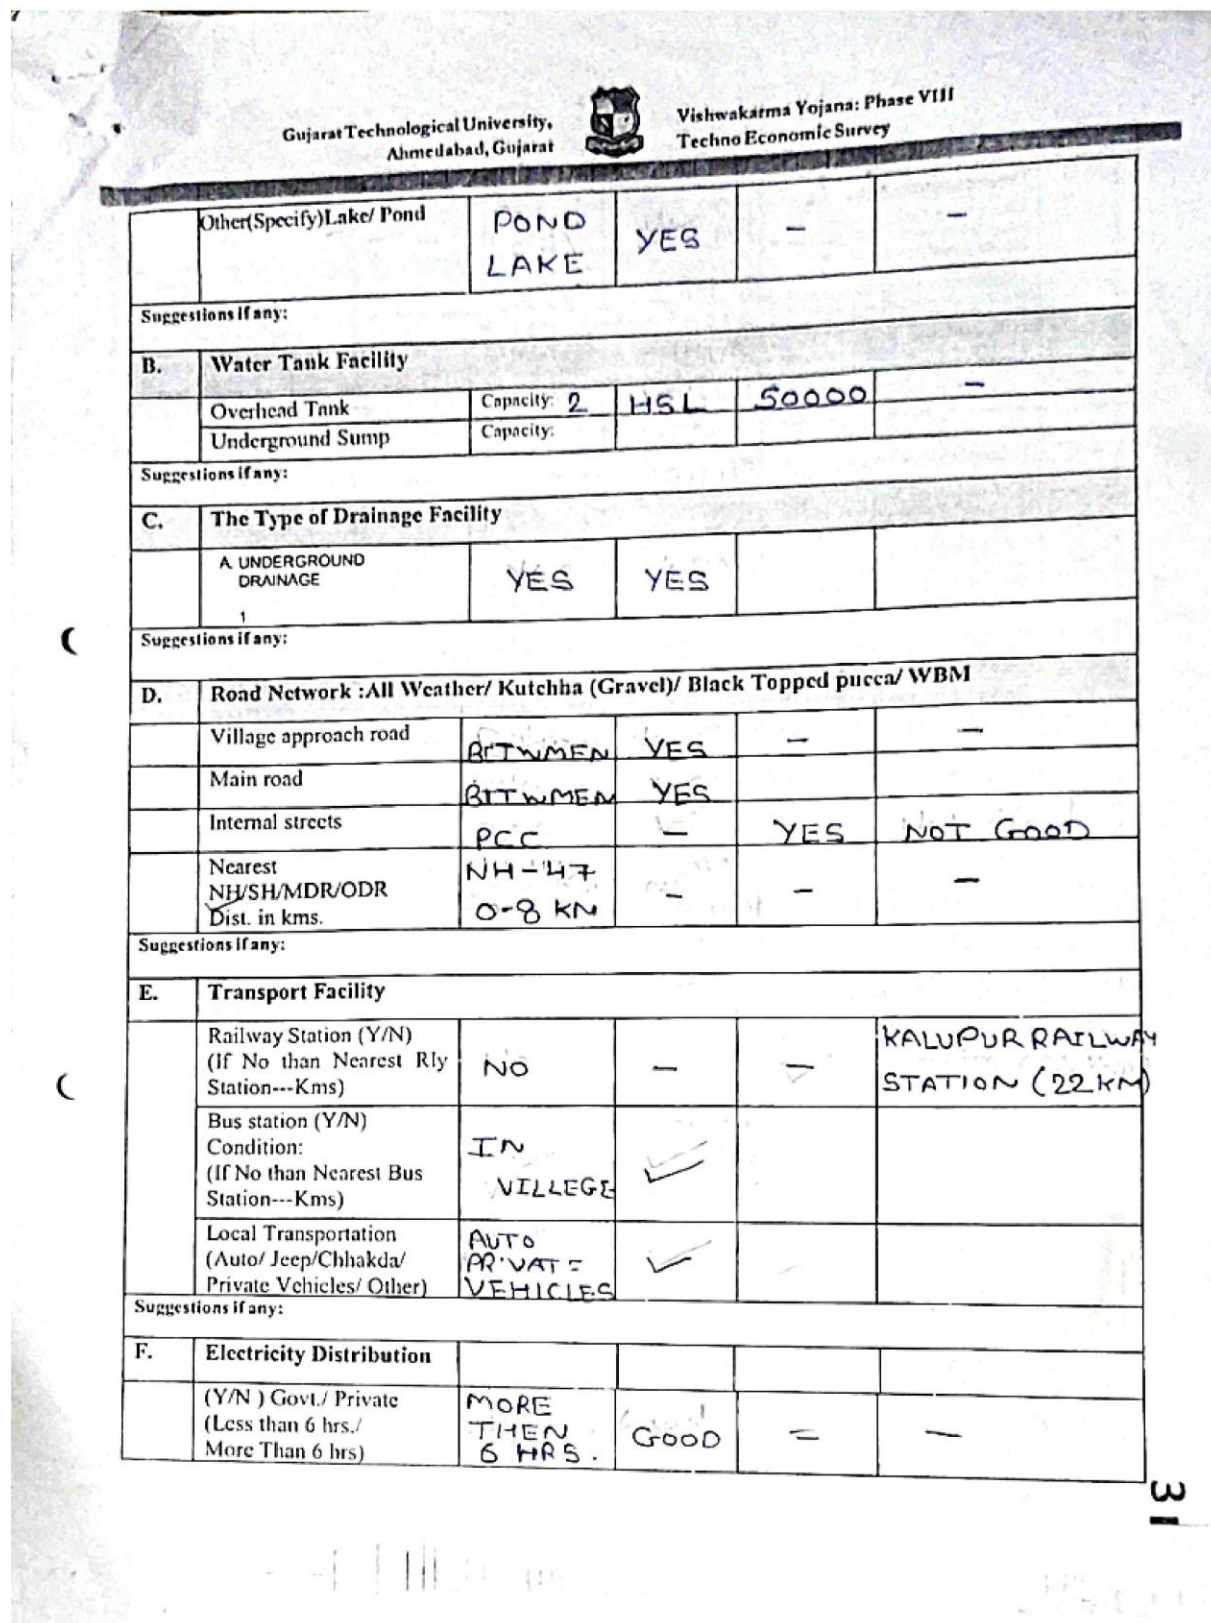 Gujarat Technological University,
Ahmedabad, Gujarat
Vishwakarma Yojana: Phase VIII
Techno Economic Survey
Other(Specify)Lake/ Pond POND LAKE YES - -
Suggestions if any:
B. Water Tank Facility
Overhead Tank Capacity: 2 HSL 50000 -
Underground Sump Capacity:
Suggestions if any:
C. The Type of Drainage Facility
A. UNDERGROUND
DRAINAGE YES YES
1
Suggestions if any:
D. Road Network :All Weather/ Kutchha (Gravel)/ Black Topped pucca/ WBM
Village approach road BITWMEN YES - -
Main road BITWMEN YES
Internal streets PCC - YES NOT GOOD
Nearest NH-47
NH/SH/MDR/ODR - - -
Dist. in kms. 0-8 KM
Suggestions if any:
E. Transport Facility
Railway Station (Y/N) KALUPUR RAILWAY
(If No than Nearest Rly NO - - STATION (22 KM)
Station---Kms)
Bus station (Y/N)
Condition: IN
(If No than Nearest Bus VILLEGE
Station---Kms)
Local Transportation AUTO
(Auto/ Jeep/Chhakda/ PRIVATE
Private Vehicles/ Other) VEHICLES
Suggestions if any:
F. Electricity Distribution
(Y/N ) Govt./ Private MORE
(Less than 6 hrs./ THEN GOOD = -
More Than 6 hrs) 6 HRS.
31